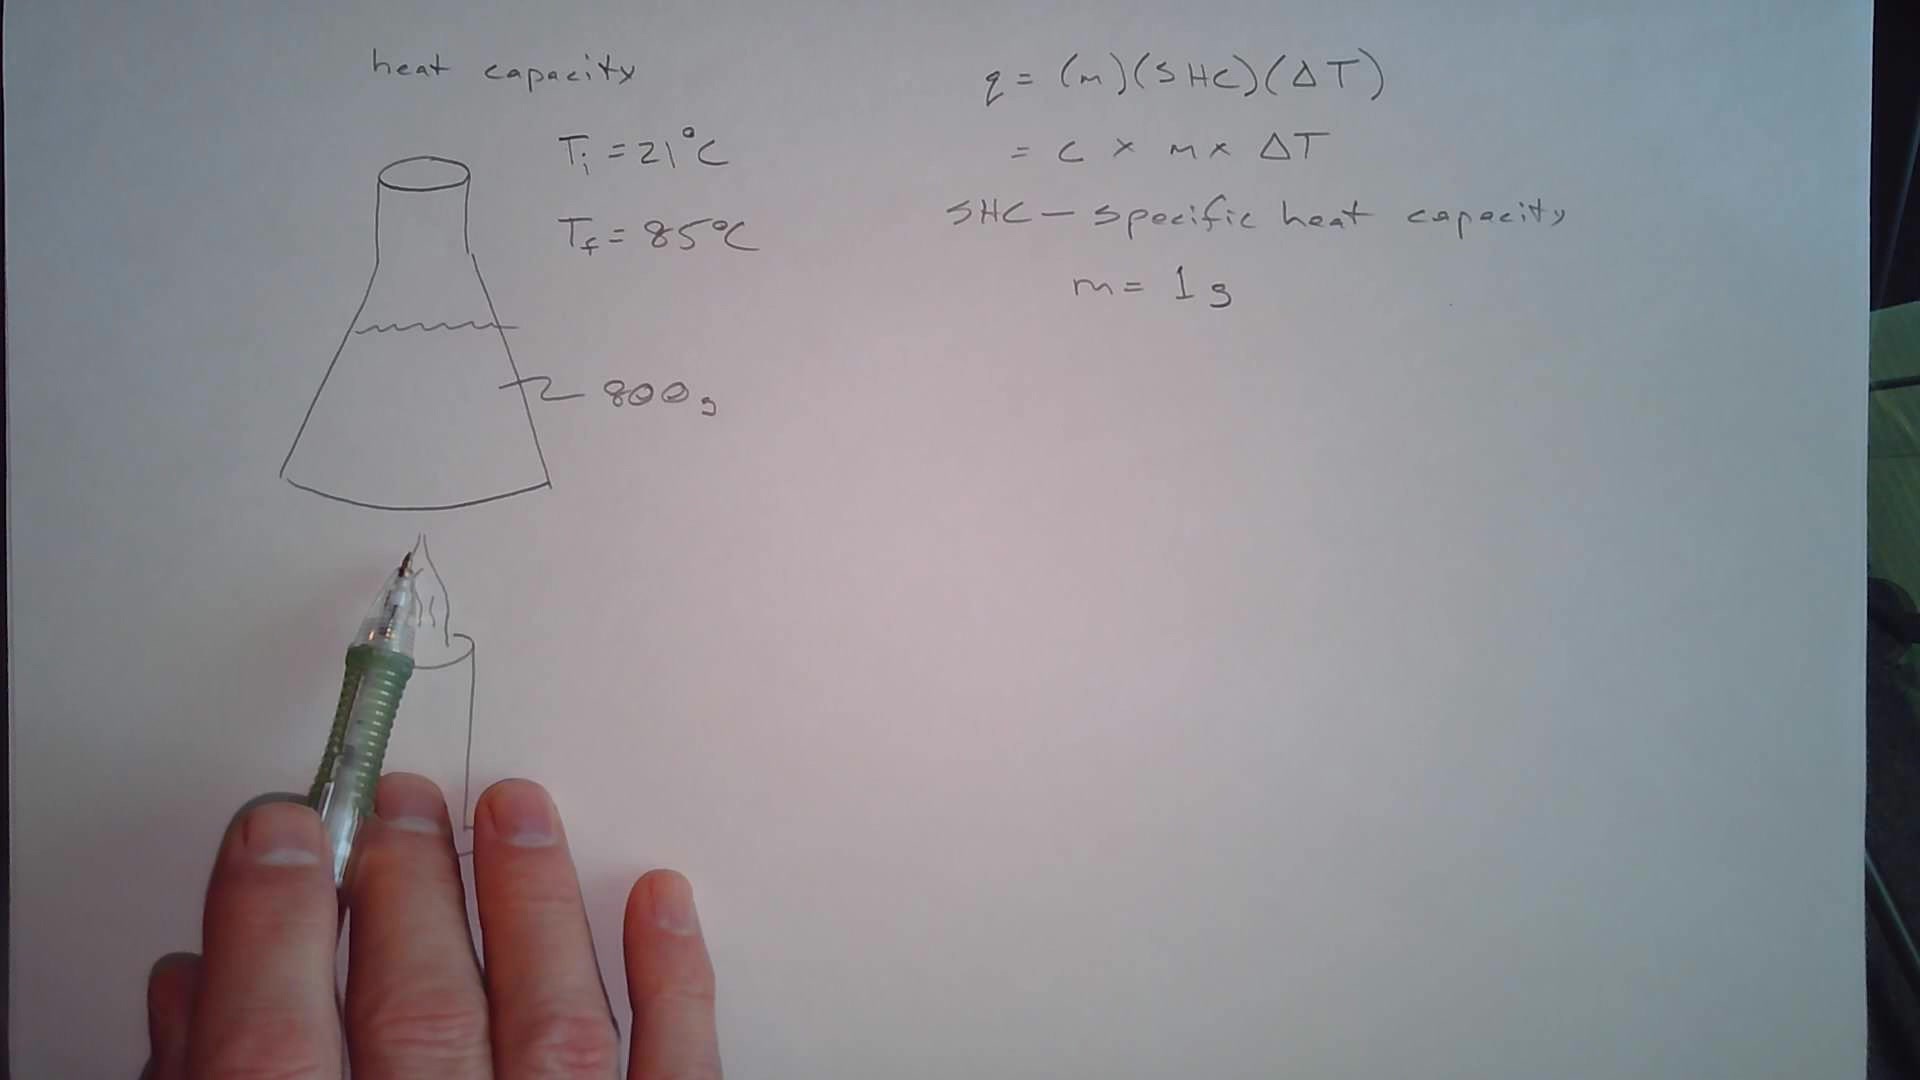 heat capacity
Ti = 21°C
Tf = 85°C
800g
q = (m)(SHC)(ΔT)
= c × m × ΔT
SHC – specific heat capacity
m = 1g